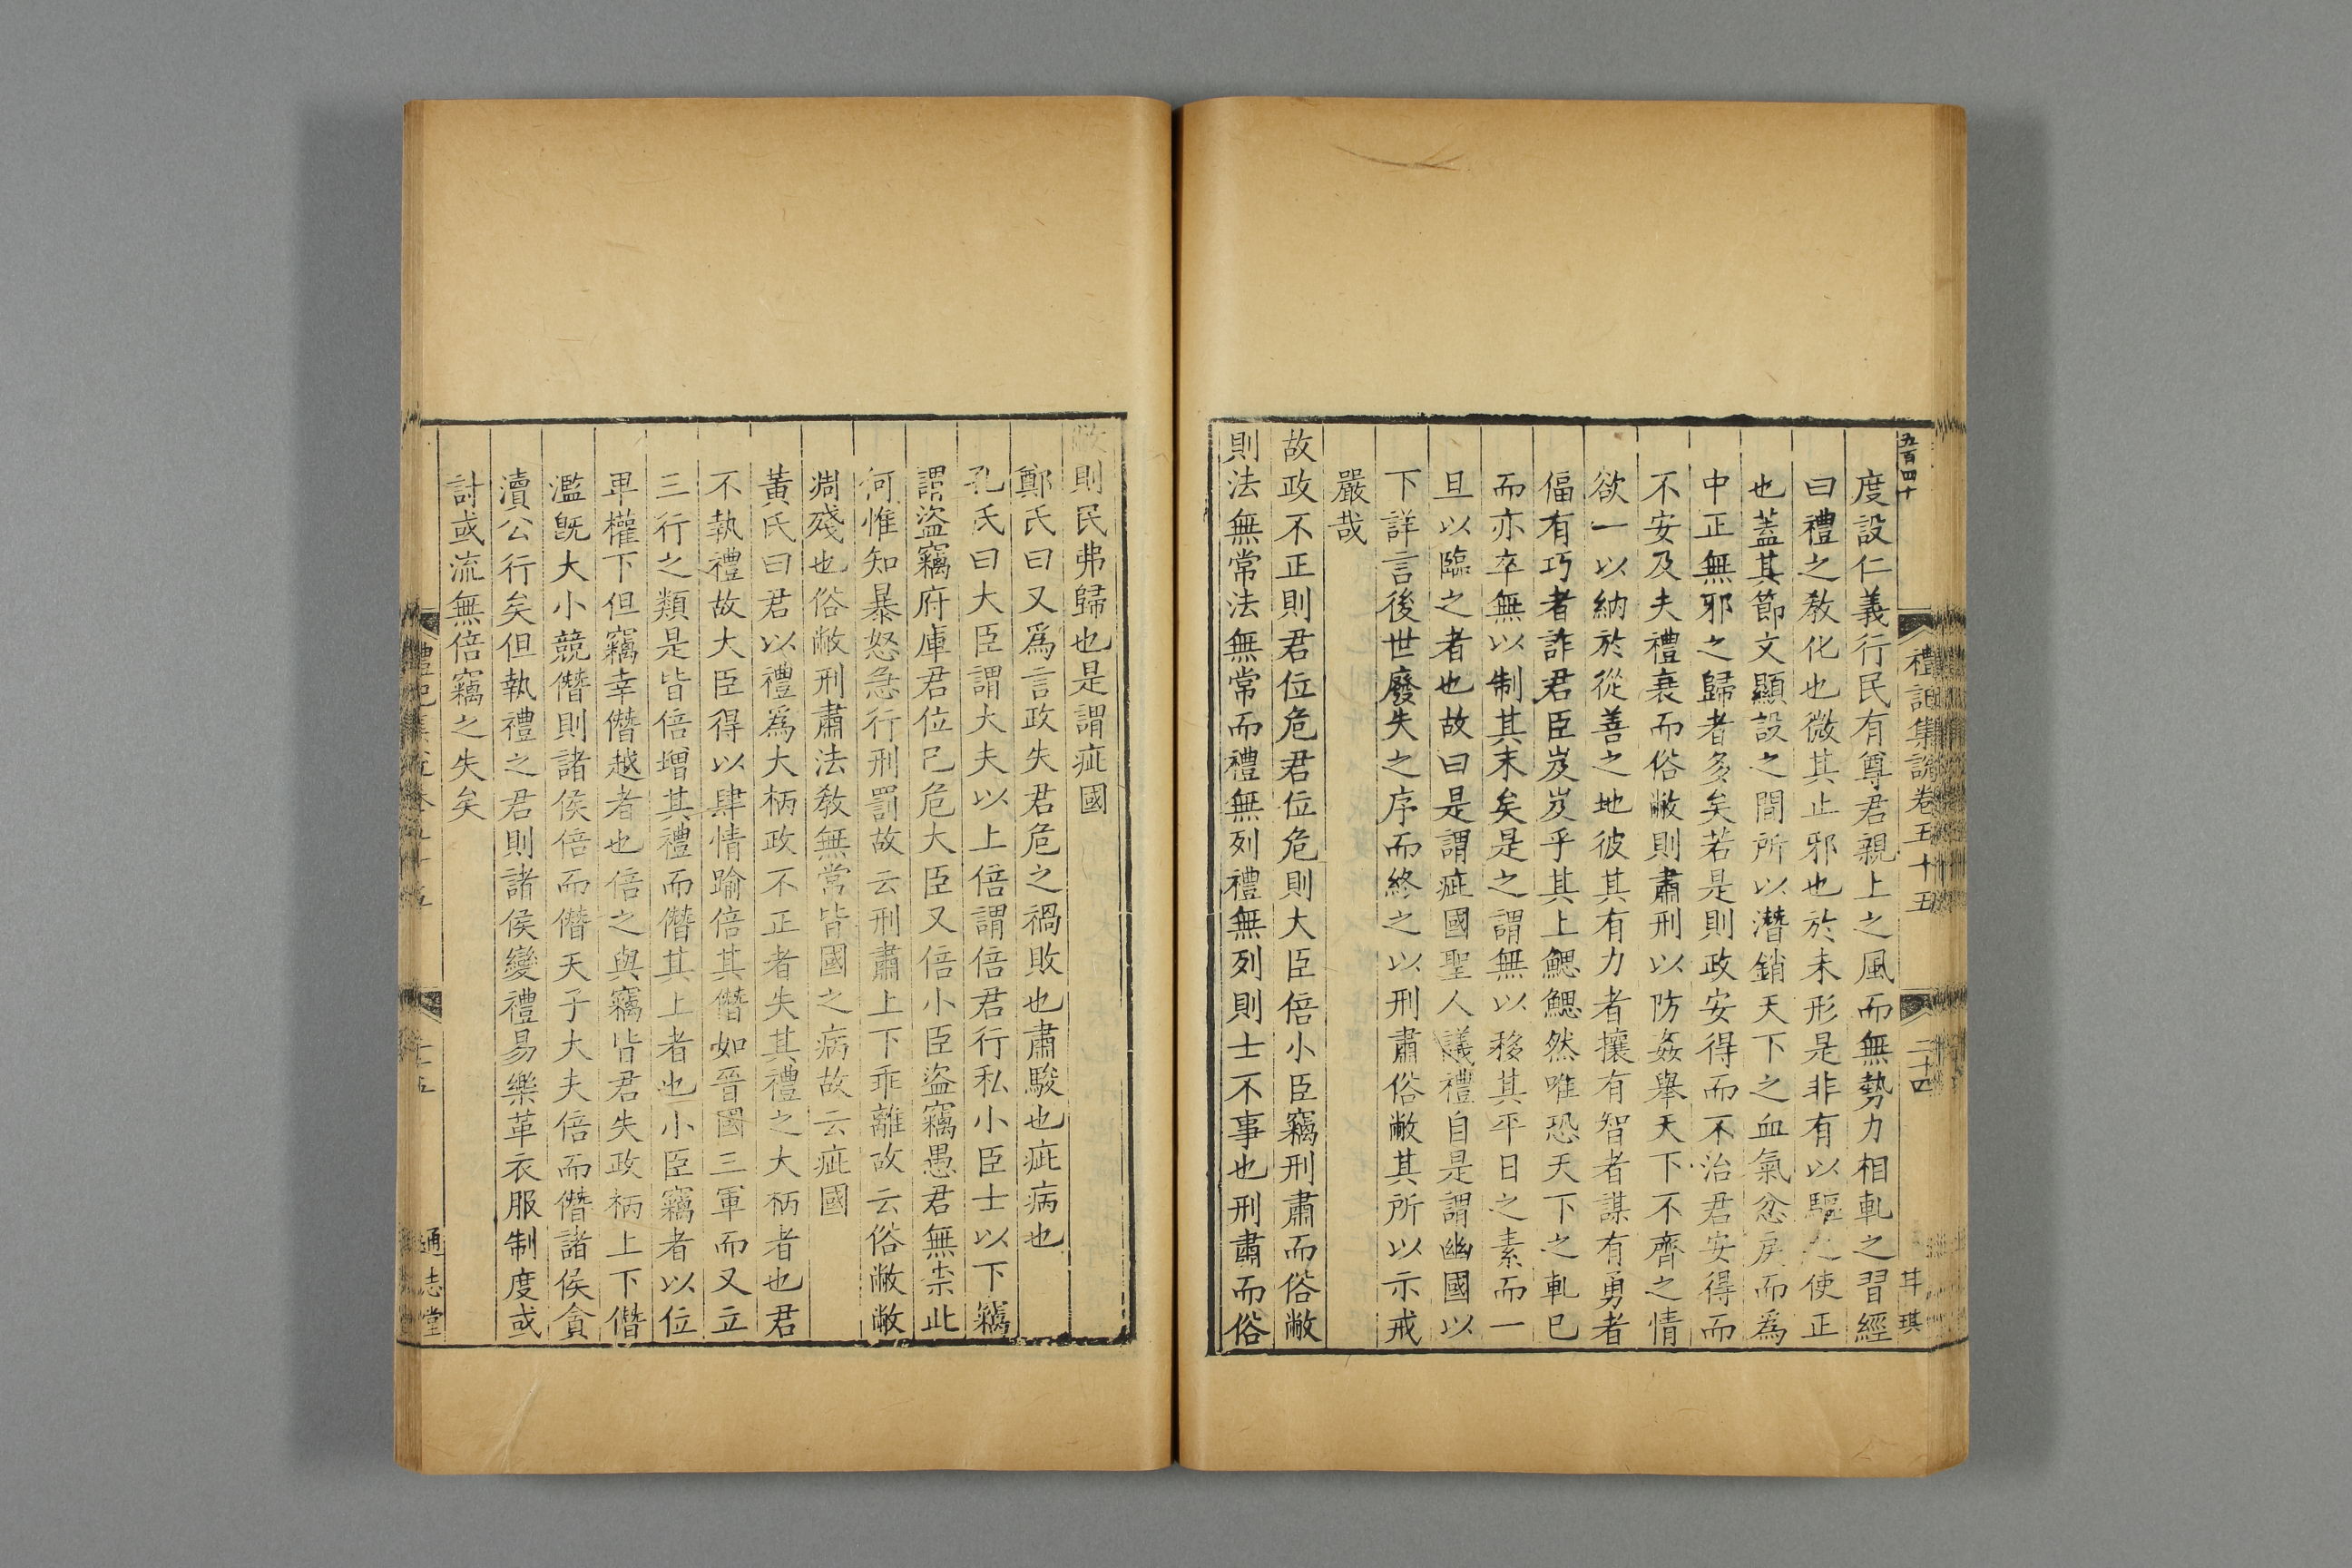 五百四十
禮記集說卷五十五
二十四
甘琪
度設仁義行民有尊君親上之風而無勢力相軋之習經
曰禮之敎化也微其止邪也於未形是非有以驅之使正
也蓋其節文顯設之間所以潛銷天下之血氣忿戾而爲
中正無邪之歸者多矣若是則政安得而不治君安得而
不安及夫禮衰而俗敝則肅刑以防姦舉天下不齊之情
欲一以納於從善之地彼其有力者攘有智者謀有勇者
偪有巧者詐君臣岌岌乎其上鰓鰓然唯恐天下之軋已
而亦卒無以制其末矣是之謂無以移其平日之素而一
旦以臨之者也故曰是謂疵國聖人議禮自是謂幽國以
下詳言後世廢失之序而終之以刑肅俗敝其所以示戒
嚴哉
故政不正則君位危君位危則大臣倍小臣竊刑肅而俗敝
則法無常法無常而禮無列禮無列則士不事也刑肅而俗
敝則民弗歸也是謂疵國
鄭氏曰又爲言政失君危之禍敗也肅駿也疵病也
孔氏曰大臣謂大夫以上倍謂倍君行私小臣士以下竊
謂盜竊府庫君位已危大臣又倍小臣盜竊愚君無柰此
何惟知暴怒急行刑罰故云刑肅上下乖離故云俗敝敝
凋殘也俗敝刑肅法敎無常皆國之病故云疵國
黃氏曰君以禮爲大柄政不正者失其禮之大柄者也君
不執禮故大臣得以肆情踰倍其僭如晉國三軍而又立
三行之類是皆倍增其禮而僭其上者也小臣竊者以位
卑權下但竊幸僭越者也倍之與竊皆君失政柄上下僭
濫旣大小競僭則諸侯倍而僭天子大夫倍而僭諸侯貪
瀆公行矣但執禮之君則諸侯變禮易樂革衣服制度或
討或流無倍竊之失矣
禮記集說卷五十五
二十五
通志堂